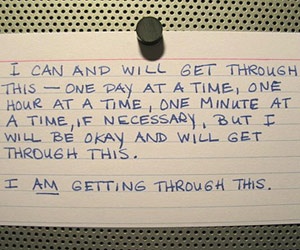 I CAN AND WILL GET THROUGH
THIS — ONE DAY AT A TIME, ONE
HOUR AT A TIME, ONE MINUTE AT
A TIME, IF NECESSARY, BUT I
WILL BE OKAY AND WILL GET
THROUGH THIS.
I AM GETTING THROUGH THIS.